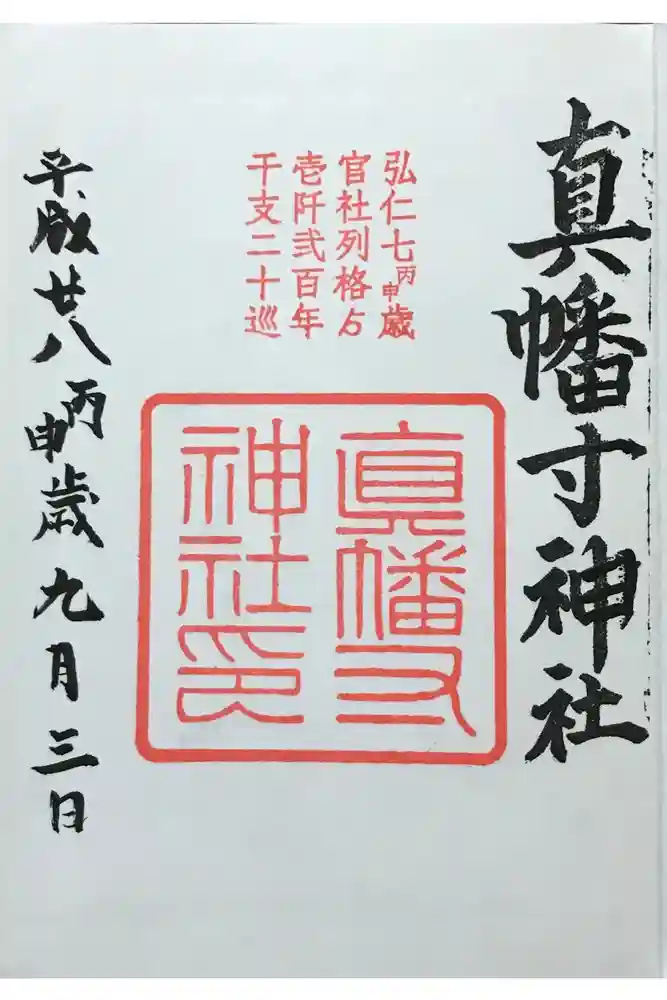 真幡寸神社
弘仁七丙申歳
官社列格ゟ
壱阡弐百年
干支二十巡
真幡寸
神社印
平成廿八丙申歳九月三日